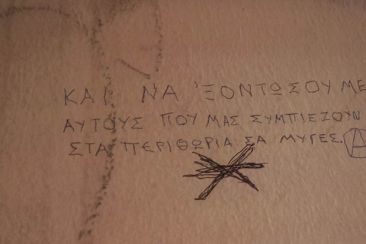 ΚΑΙ ΝΑ 'ΞΟΝΤΩΣΟΥΜΕ
ΑΥΤΟΥΣ ΠΟΥ ΜΑΣ ΣΥΜΠΙΕΖΟΥΝ
ΣΤΑ ΠΕΡΙΘΩΡΙΑ ΣΑ ΜΥΓΕΣ. Α